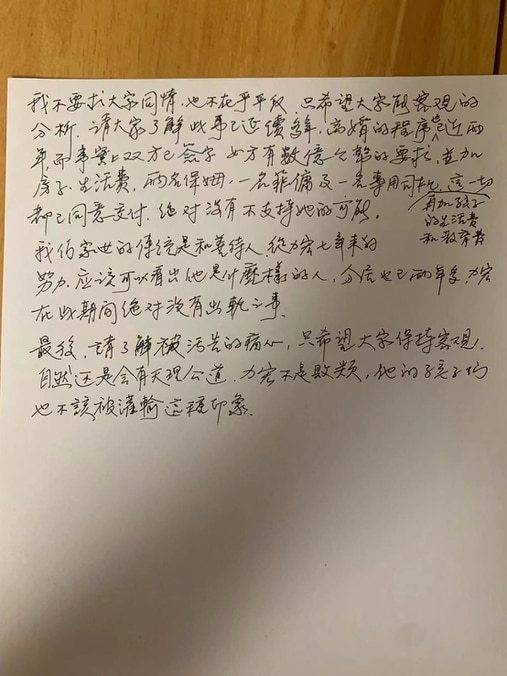 我不要求大家同情,也不在乎平反,只希望大家能客观的
分析.请大家了解此事已延續多年,离婚的程序也已近两
年,即事實上双方已签字,女方有数億金額的要求,並加
房子、生活費,两名保姆,一名菲傭及一名專用司机,這一切
都已同意交付,绝对沒有不支持她的可能.
再加孩子
的生活费
和教育费
我们家世的传统是和善待人,從力宏七年来的
努力,应該可以看出他是什麽樣的人,分居也已两年多,力宏
在此期间绝对沒有出軌之事.
最後,請了解被污蔑的痛心,只希望大家保持客观.
自然还是会有天理公道.力宏不是败類,他的孩子们
也不該被灌輸這種印象.